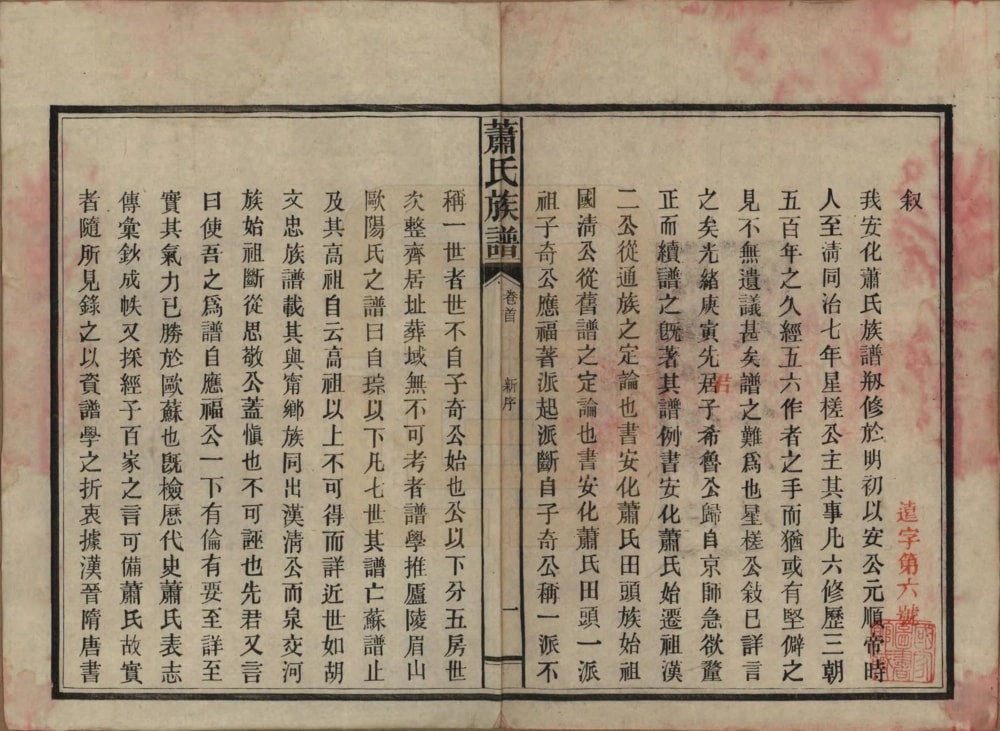 叙
我安化蕭氏族譜剏修於明初以安公元順帝時
人至淸同治七年星槎公主其事凡六修歷三朝
五百年之久經五六作者之手而猶或有堅僻之
見不無遺議甚矣譜之難爲也星槎公敍已詳言
之矣光緒庚寅先居子希魯公歸自京師急欲釐
君
正而續譜之旣著其譜例書安化蕭氏始遷祖漢
二公從通族之定論也書安化蕭氏田頭族始祖
國淸公從舊譜之定論也書安化蕭氏田頭一派
祖子奇公應福著派起派斷自子奇公稱一派不
蕭氏族譜
卷首
新序
一
稱一世者世不自子奇公始也公以下分五房世
次整齊居址葬域無不可考者譜學推廬陵眉山
歐陽氏之譜曰自琮以下凡七世其譜亡蘇譜止
及其高祖自云高祖以上不可得而詳近世如胡
文忠族譜載其與甯鄉族同出漢淸公而泉交河
族始祖斷從思敬公蓋愼也不可誣也先君又言
曰使吾之爲譜自應福公一下有倫有要至詳至
實其氣力已勝於歐蘇也旣檢歷代史蕭氏表志
傳彙鈔成帙又採經子百家之言可備蕭氏故實
者隨所見錄之以資譜學之折衷據漢晉隋唐書
遠字第六號